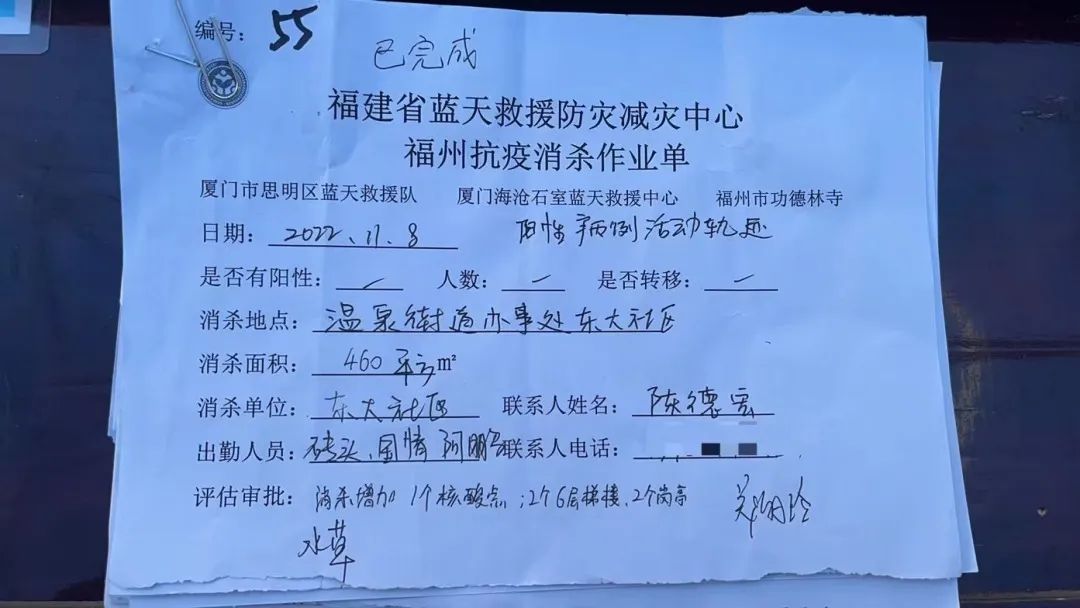 编号: 55
已完成
福建省蓝天救援防灾减灾中心
福州抗疫消杀作业单
厦门市思明区蓝天救援队 厦门海沧石室蓝天救援中心 福州市功德林寺
日期: 2022.11.8 阳性病例活动轨迹
是否有阳性: 人数: 是否转移:
消杀地点: 温泉街道办事处东大社区
消杀面积: 460平方㎡
消杀单位: 东大社区 联系人姓名: 陈德
出勤人员: 砖头、国情 阿鹏 联系人电话:
评估审批: 消杀增加1个核酸点;2个6层梯楼、2个岗亭
水草